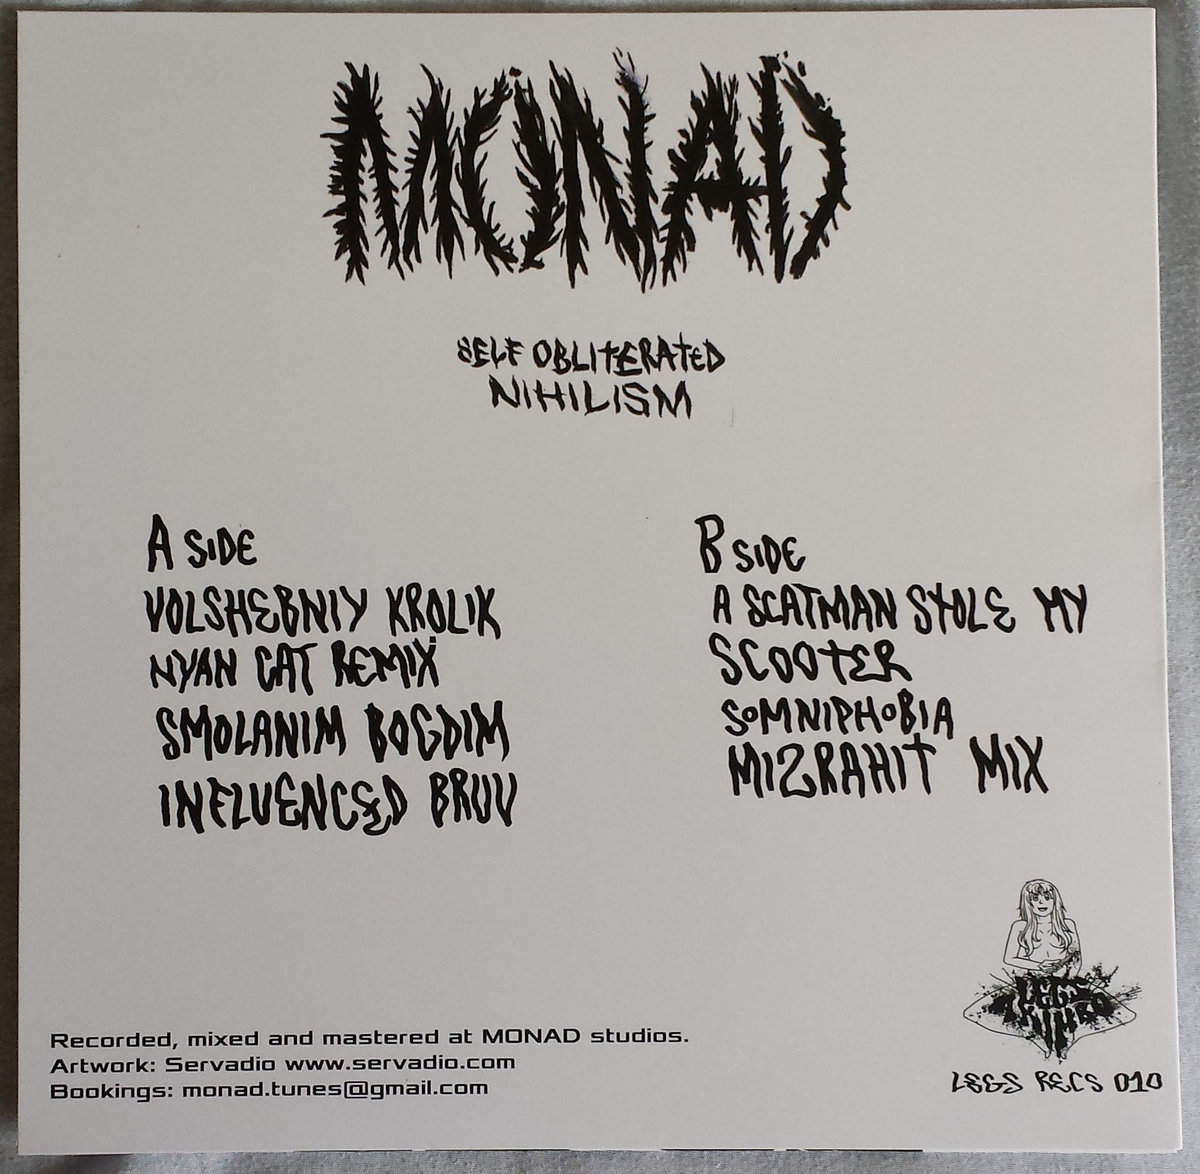 MONAD
SELF OBLITERATED
NIHILISM
A SIDE
VOLSHEBNIY KROLIK
NYAN CAT REMIX
SMOLANIM BOGDIM
INFLUENCED BRUV
B SIDE
A SCATMAN STOLE MY
SCOOTER
SOMNIPHOBIA
MIZRAHIT MIX
Recorded, mixed and mastered at MONAD studios.
Artwork: Servadio www.servadio.com
Bookings: monad.tunes@gmail.com
LEGS
AKIMBO
LEGS RECS 010